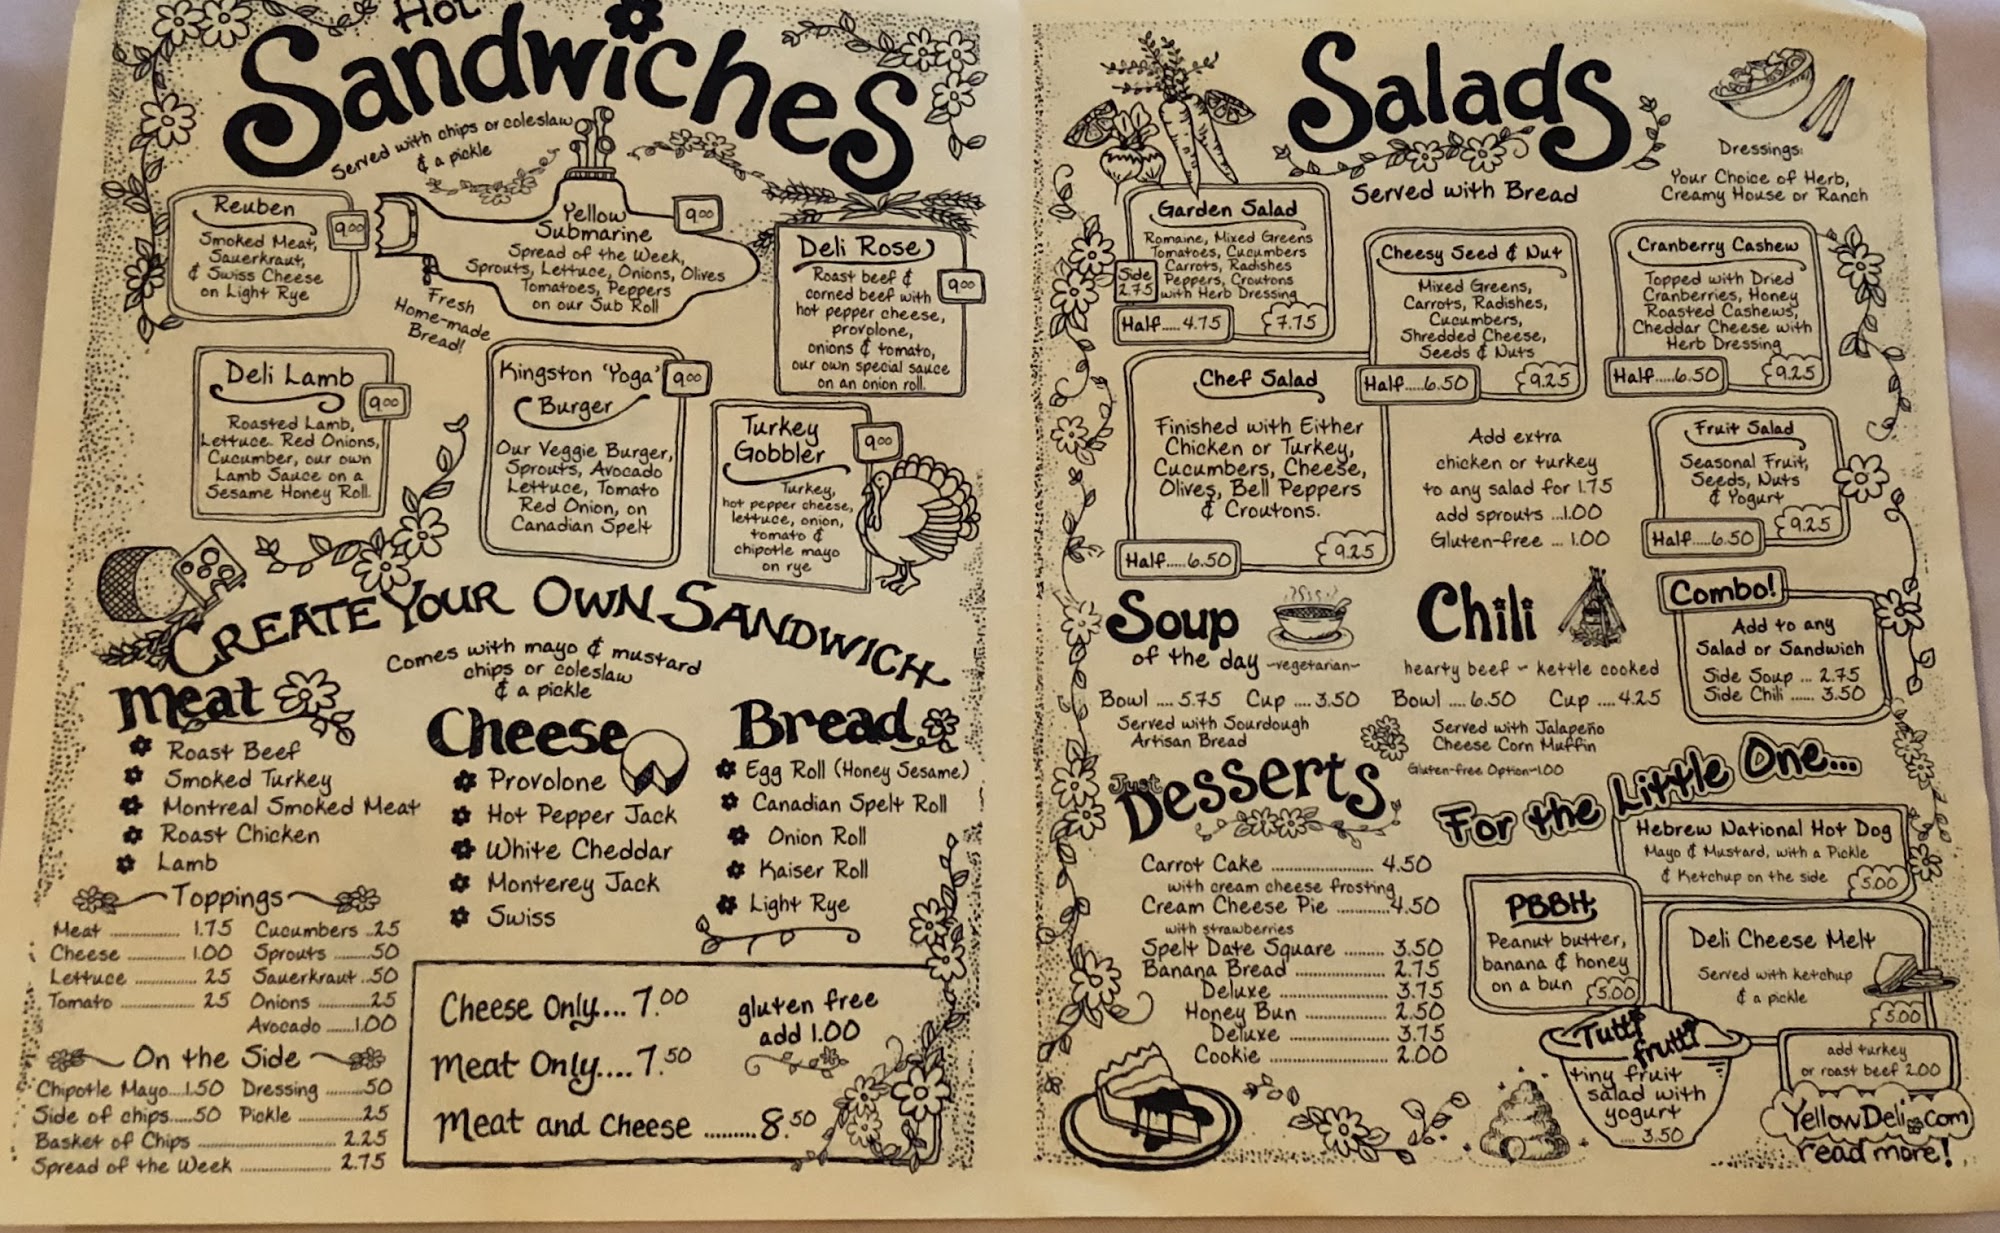 Hot
Sandwiches
Served with chips or coleslaw
& a pickle
Reuben
9.00
Smoked Meat,
Sauerkraut,
& Swiss Cheese
on Light Rye
Yellow
Submarine
9.00
Spread of the Week,
Sprouts, Lettuce, Onions, Olives
Tomatoes, Peppers
on our Sub Roll
Fresh
Home-made
Bread!
Deli Rose
9.00
Roast beef &
corned beef with
hot pepper cheese,
provolone,
onions & tomato,
our own special sauce
on an onion roll.
Deli Lamb
9.00
Roasted Lamb,
Lettuce Red Onions,
Cucumber, our own
Lamb Sauce on a
Sesame Honey Roll.
Kingston 'Yoga'
Burger
9.00
Our Veggie Burger,
Sprouts, Avocado
Lettuce, Tomato
Red Onion, on
Canadian Spelt
Turkey
Gobbler
9.00
Turkey,
hot pepper cheese,
lettuce, onion,
tomato &
chipotle mayo
on rye
Create Your Own Sandwich
Comes with mayo & mustard
chips or coleslaw
& a pickle
Meat
Roast Beef
Smoked Turkey
Montreal Smoked Meat
Roast Chicken
Lamb
Cheese
Provolone
Hot Pepper Jack
White Cheddar
Monterey Jack
Swiss
Bread
Egg Roll (Honey Sesame)
Canadian Spelt Roll
Onion Roll
Kaiser Roll
Light Rye
Toppings
Meat ........ 1.75 Cucumbers ..25
Cheese ........ 1.00 Sprouts ........50
Lettuce ........ 25 Sauerkraut ..50
Tomato ........ 25 Onions ........25
Avocado ......1.00
On the Side
Chipotle Mayo....1.50 Dressing ......50
Side of chips.....50 Pickle ........25
Basket of Chips ........ 2.25
Spread of the Week ........ 2.75
Cheese Only.... 7.00
Meat Only.... 7.50
Meat and Cheese ......... 8.50
gluten free
add 1.00
Salads
Served with Bread
Dressings:
Your Choice of Herb,
Creamy House or Ranch
Garden Salad
Romaine, Mixed Greens
Tomatoes, Cucumbers
Carrots, Radishes
Peppers, Croutons
with Herb Dressing
Side
2.75
Half.....4.75
7.75
Cheesy Seed & Nut
Mixed Greens,
Carrots, Radishes,
Cucumbers,
Shredded Cheese,
Seeds & Nuts
Half.....6.50
9.25
Cranberry Cashew
Topped with Dried
Cranberries, Honey
Roasted Cashews,
Cheddar Cheese with
Herb Dressing
Half.....6.50
9.25
Chef Salad
Finished with Either
Chicken or Turkey,
Cucumbers, Cheese,
Olives, Bell Peppers
& Croutons.
Half.....6.50
9.25
Add extra
chicken or turkey
to any salad for 1.75
add sprouts ...1.00
Gluten-free ... 1.00
Fruit Salad
Seasonal Fruit,
Seeds, Nuts
& Yogurt
Half.....6.50
9.25
Soup
of the day ~vegetarian~
Bowl .... 5.75 Cup .... 3.50
Served with Sourdough
Artisan Bread
Chili
hearty beef ~ kettle cooked
Bowl .... 6.50 Cup .... 4.25
Served with Jalapeño
Cheese Corn Muffin
Gluten-free Option~1.00
Combo!
Add to any
Salad or Sandwich
Side Soup ... 2.75
Side Chili ...... 3.50
Just
Desserts
Carrot Cake ........ 4.50
with cream cheese frosting
Cream Cheese Pie ........4.50
with strawberries
Spelt Date Square ........ 3.50
Banana Bread ........ 2.75
Deluxe ........ 3.75
Honey Bun ........ 2.50
Deluxe ........ 3.75
Cookie ........ 2.00
For the Little One...
Hebrew National Hot Dog
Mayo & Mustard, with a Pickle
& Ketchup on the side
5.00
PBBH
Peanut butter,
banana & honey
on a bun
5.00
Deli Cheese Melt
Served with ketchup
& a pickle
5.00
add turkey
or roast beef 2.00
Tutti
frutti
tiny fruit
salad with
yogurt
.... 3.50
YellowDeli.com
read more!